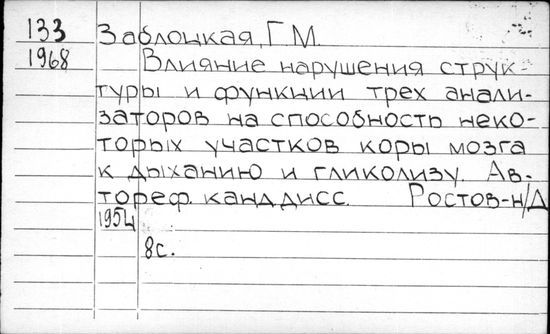 133 Заблоцкая, Г.М.
1968 Влияние нарушения струк-
туры и функции трех анали-
заторов на способность неко-
торых участков коры мозга
к дыханию и гликолизу. Ав-
тореф. канд.дисс. Ростов-н/Д
1954
8с.